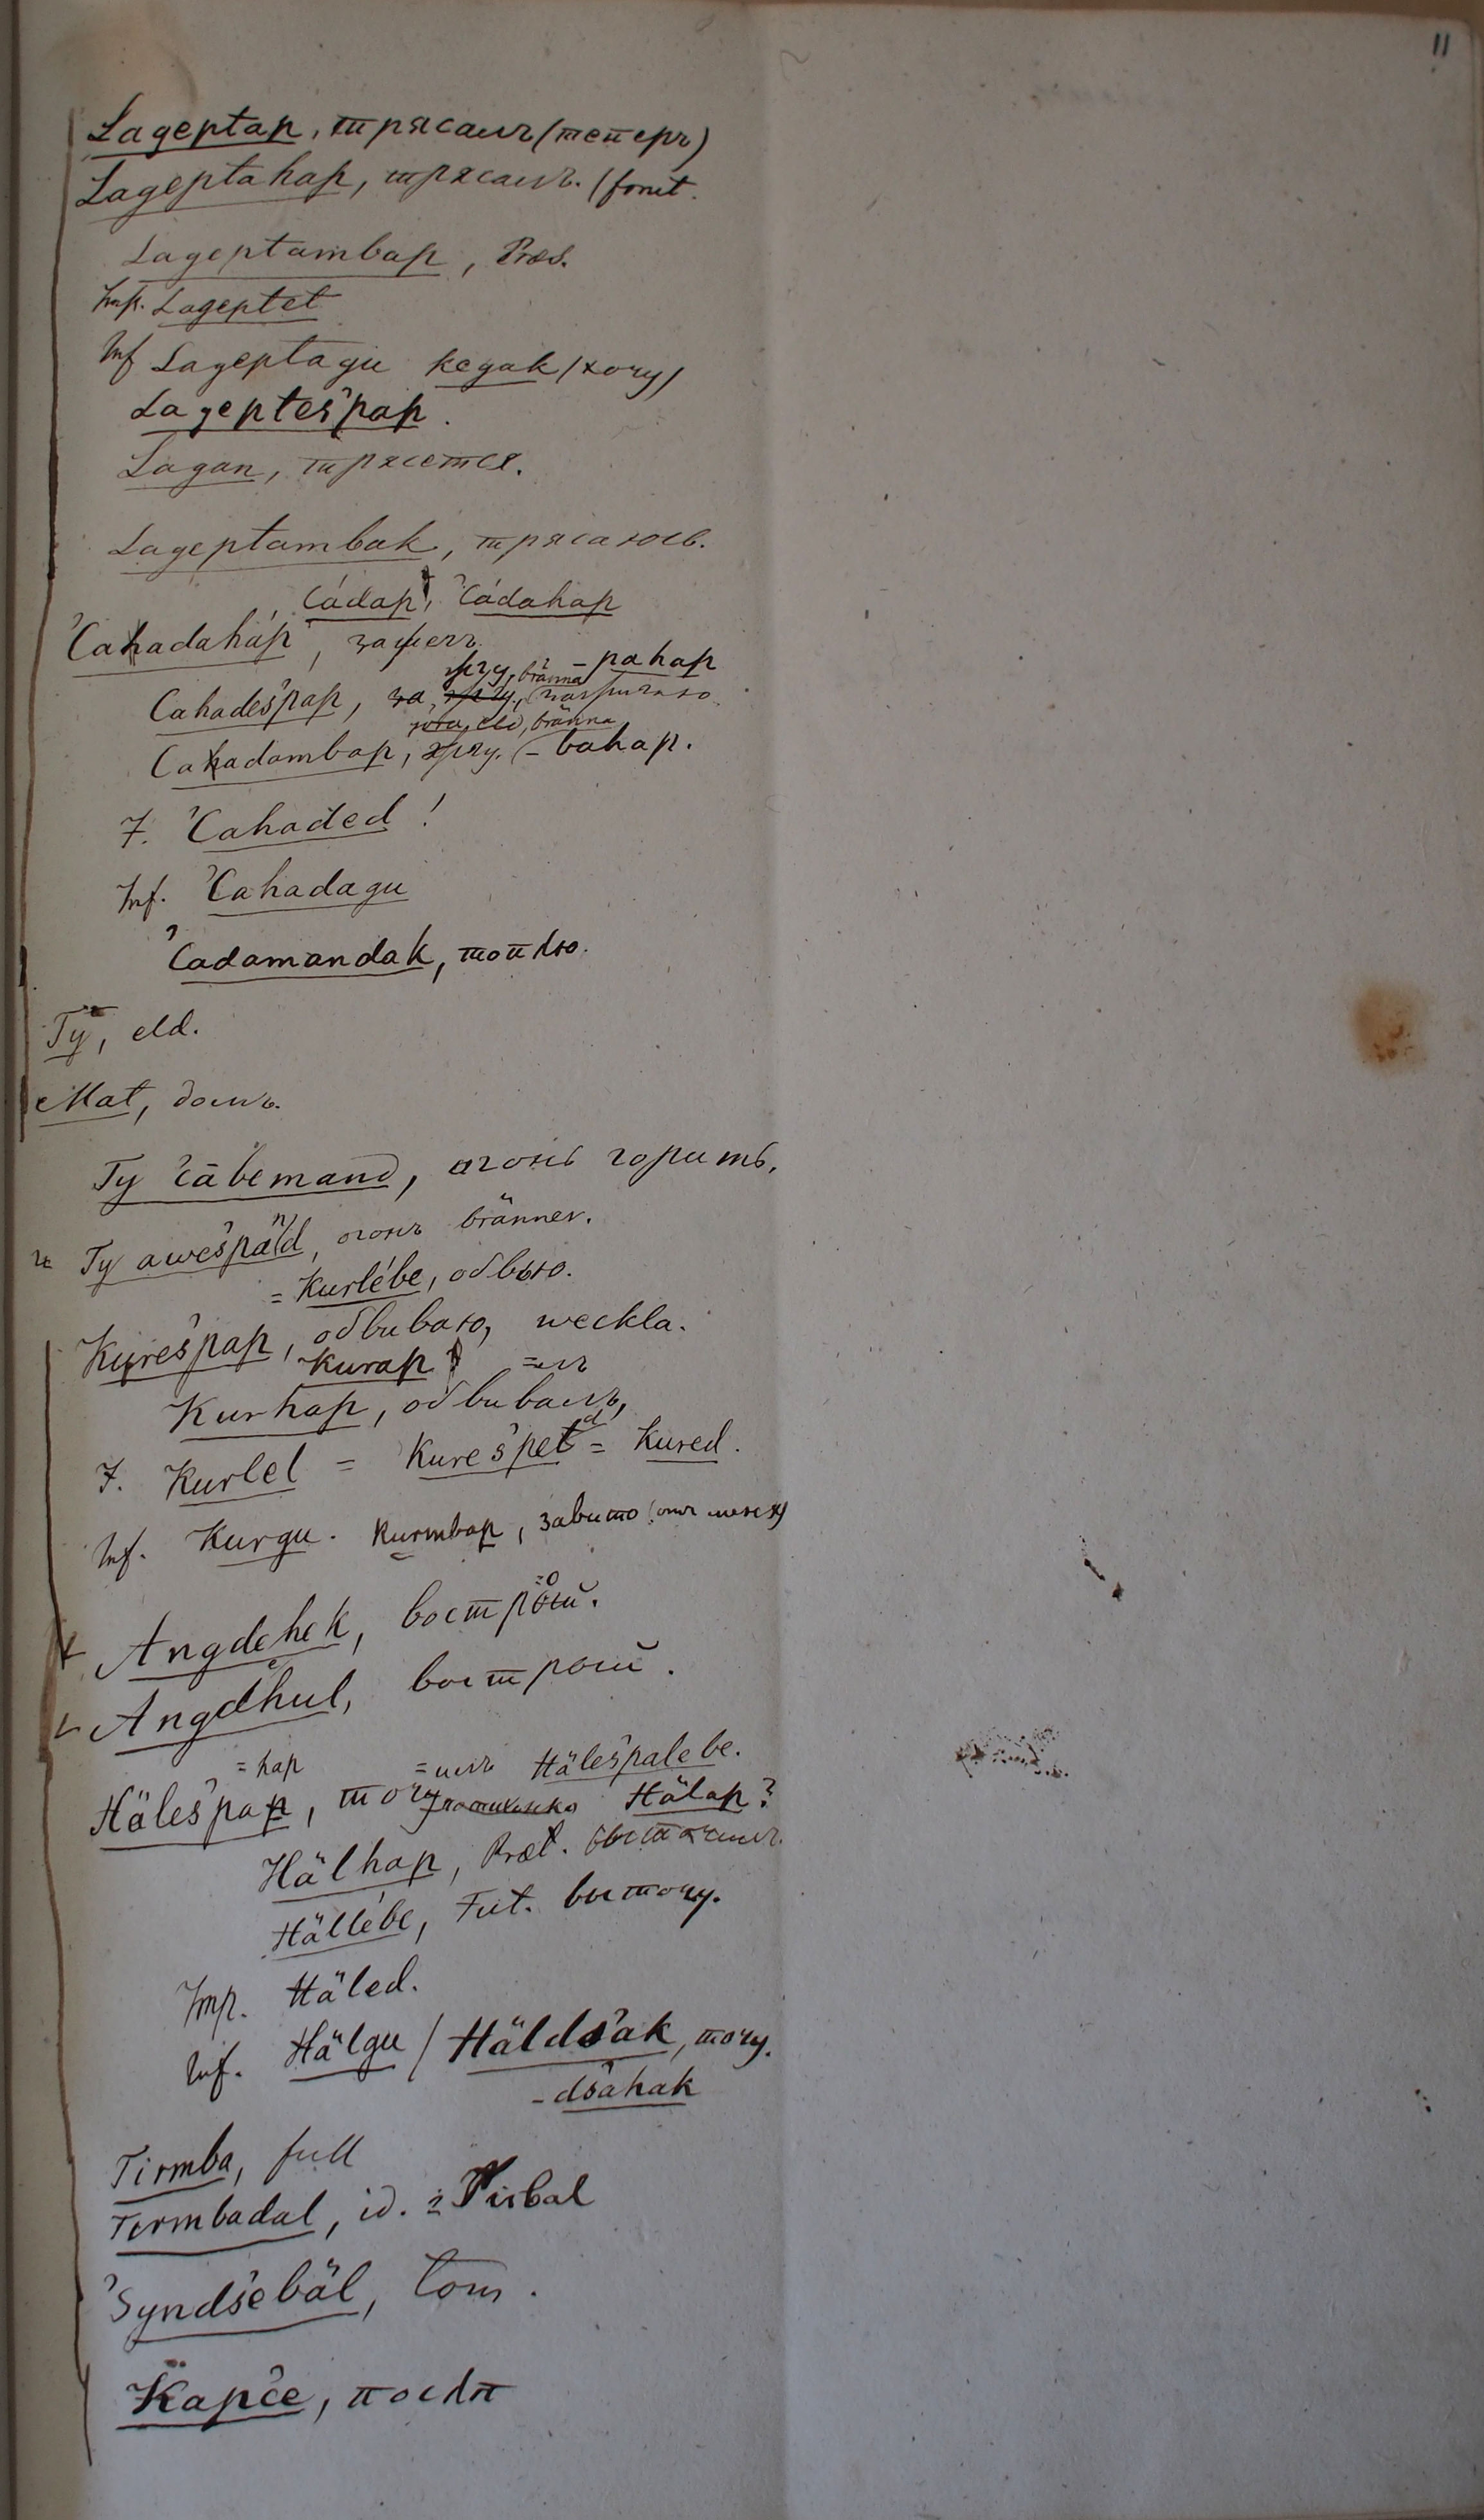 11
Lageptap, трясалъ (теперъ)
Lageptahap, трясалъ. (fornt.
Lageptambap, Præs.
Imp. Lageptet
Inf Lageptagu kegak (хочу)
Lagepteśpap.
Lagan, трясется.
Lageptambak, трясаюсь.
Cádap, Cádahap
Cahadaháp, зажегъ
жгу, bränna - pahap
Cahadeśpap, за
eld, bränna
Cahadambap, жгу. (- bahap.
I. Cahaded!
Inf. Cahadagu
Cadamandak, топлю.
Tÿ, eld.
Mat, домъ.
Ty cābemand, огонь горитъ.
Ty aweśpänd, огонъ bränner.
= Kurlébe, обвью.
Kureśpap, обвиваю, weckla.
Kurap =лъ
Kurhap, обвивалъ,
I. Kurlel = Kureśpetd = Kured.
Inf. Kurgu. Kurmbap, завито
=o
Angdehek, вострый.
Angdhul, вострой.
=hap =илъ Häleśpalebe.
Häleśpap, точу Hälap?
Hälhap, Præt. выточилъ.
Hällébe, Fut. виточу.
Imp. Häled.
Inf. Hälgu / Häldśak, точу.
- dśahak
Tirmba, full
Tirmbadal, id. = Tirbal
Syndśebäl, tom.
Kapće, послѣ